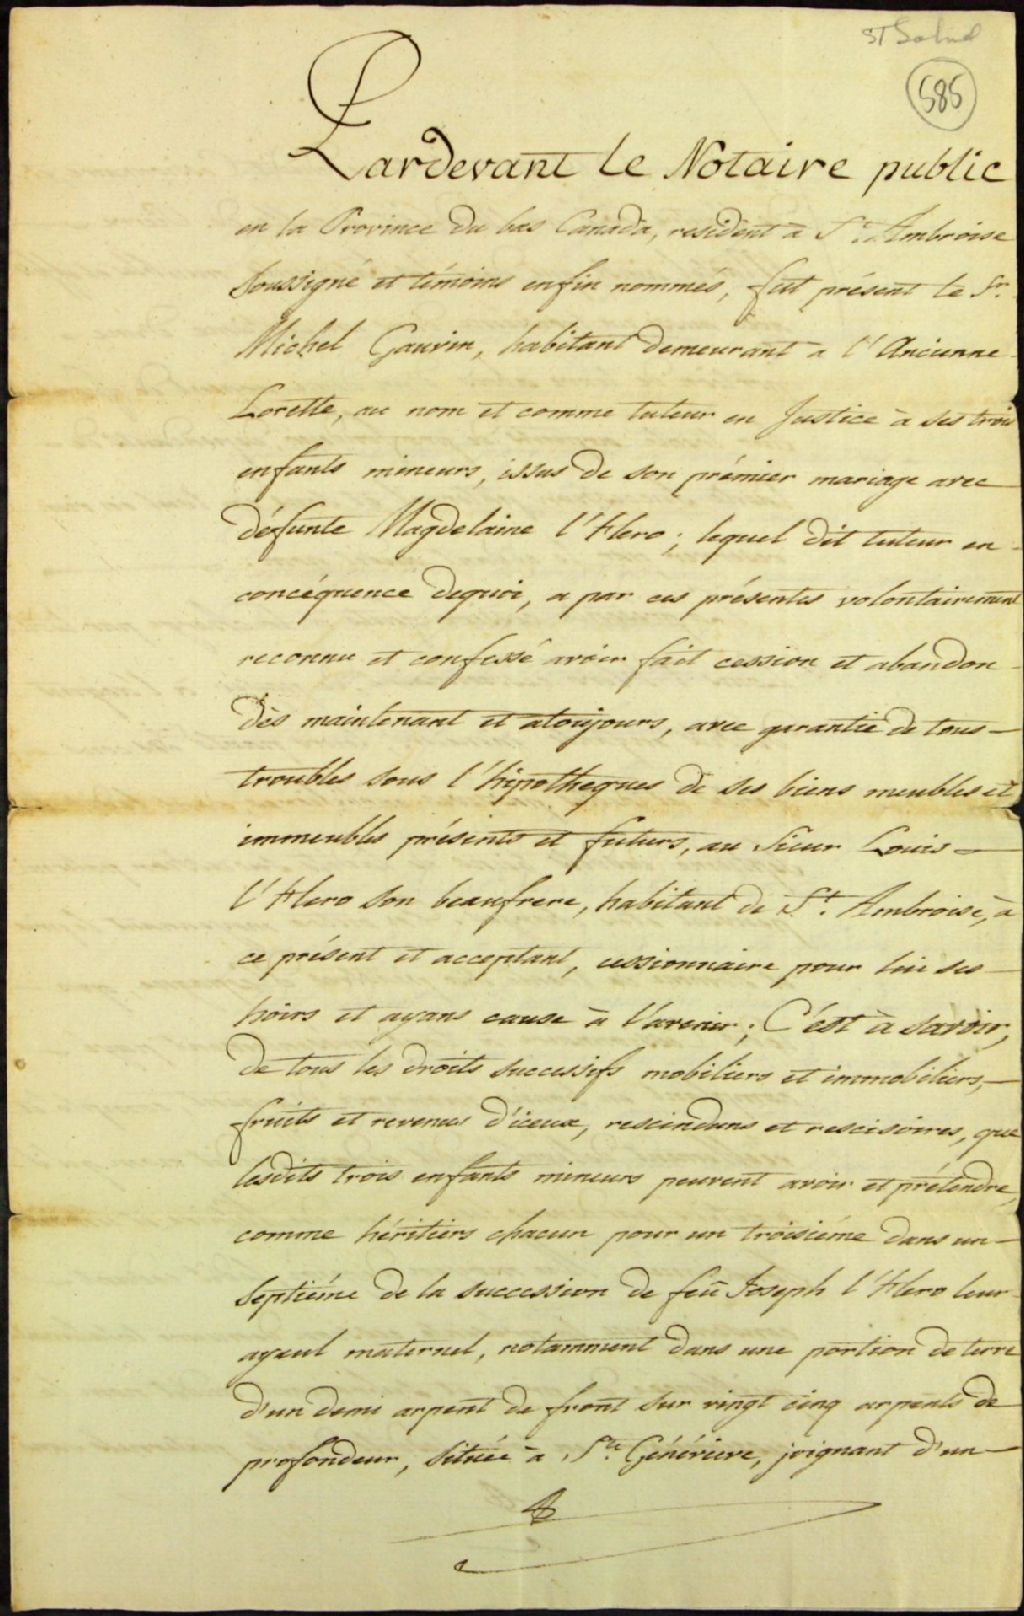 ST Gabriel
585
Pardevant le Notaire public
en la Province du bas Canada, resident à St. Ambroise
Soussigné et témoins enfin nommés, fut présent le Sr.
Michel Gauvin, habitant demeurant a l'Ancienne
Lorette, au nom et comme tuteur en Justice à ses trois
enfants mineurs, issus de son prémier mariage avec
défunte Magdelaine l'Hero; lequel dit tuteur en
concéquence dequoi, a par ces présentes volontairement
reconnu et confessé avoir fait cession et abandon
dès maintenant et atoujours, avec garantie de tous
troubles sous l'hipotheques de ses biens meubles et
immeubles présents et futurs, au Sieur Louis
l'Hero son beaufrere, habitant de St. Ambroise, à
ce présent et acceptant, cessionnaire pour lui ses
hoirs et ayans cause à l'avenir; C'est à savoir,
de tous les droits successifs mobiliers et immobiliers,
fruits et revenus d'iceux, rescindans et rescisoires, que
lesdits trois enfants mineurs peuvent avoir et prétendre,
comme héritiers chacun pour un troisiéme dans un
Septiéme de la succession de feü Joseph l'Hero leur
ayeul maternel, notamment dans une portion de terre
d'un demi arpent de front sur vingt cinq arpents de
profondeur, située à Ste. Généviève, joignant d'un